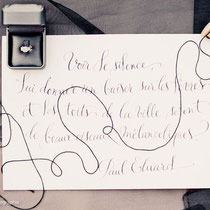 Voir le silence.
Lui donner un baiser sur les lèvres
et les toits de la ville seront
de beaux oiseaux mélancoliques
Paul Eluard